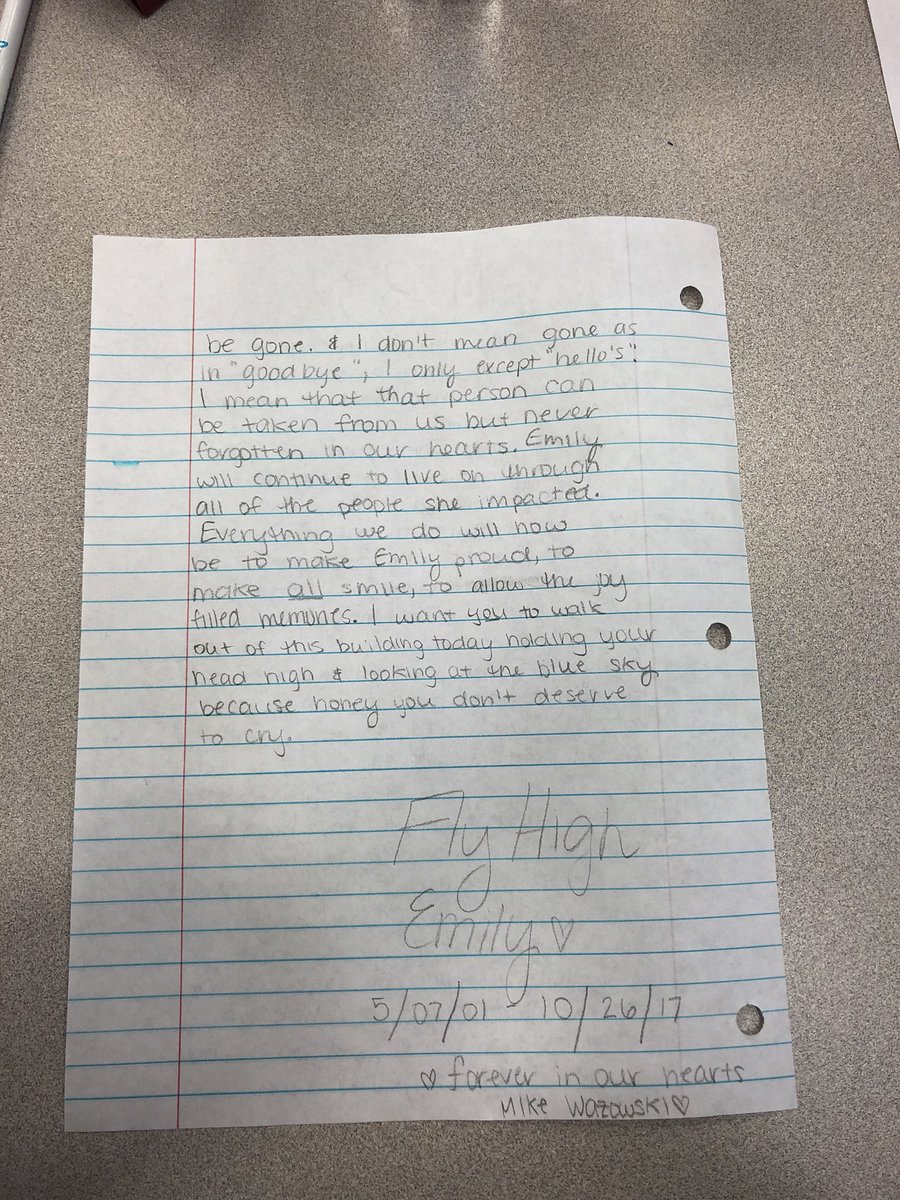 be gone. & I don't mean gone as
in "goodbye", I only except "hello's".
I mean that that person can
be taken from us but never
forgotten in our hearts. Emily
will continue to live on through
all of the people she impacted.
Everything we do will now
be to make Emily proud, to
make all smile, to allow the joy
filled memories. I want you to walk
out of this building today holding your
head high & looking at the blue sky
because honey you don't deserve
to cry.
Fly High
Emily ♡
5/07/01 - 10/26/17
♡ forever in our hearts
Mike Wazowski ♡